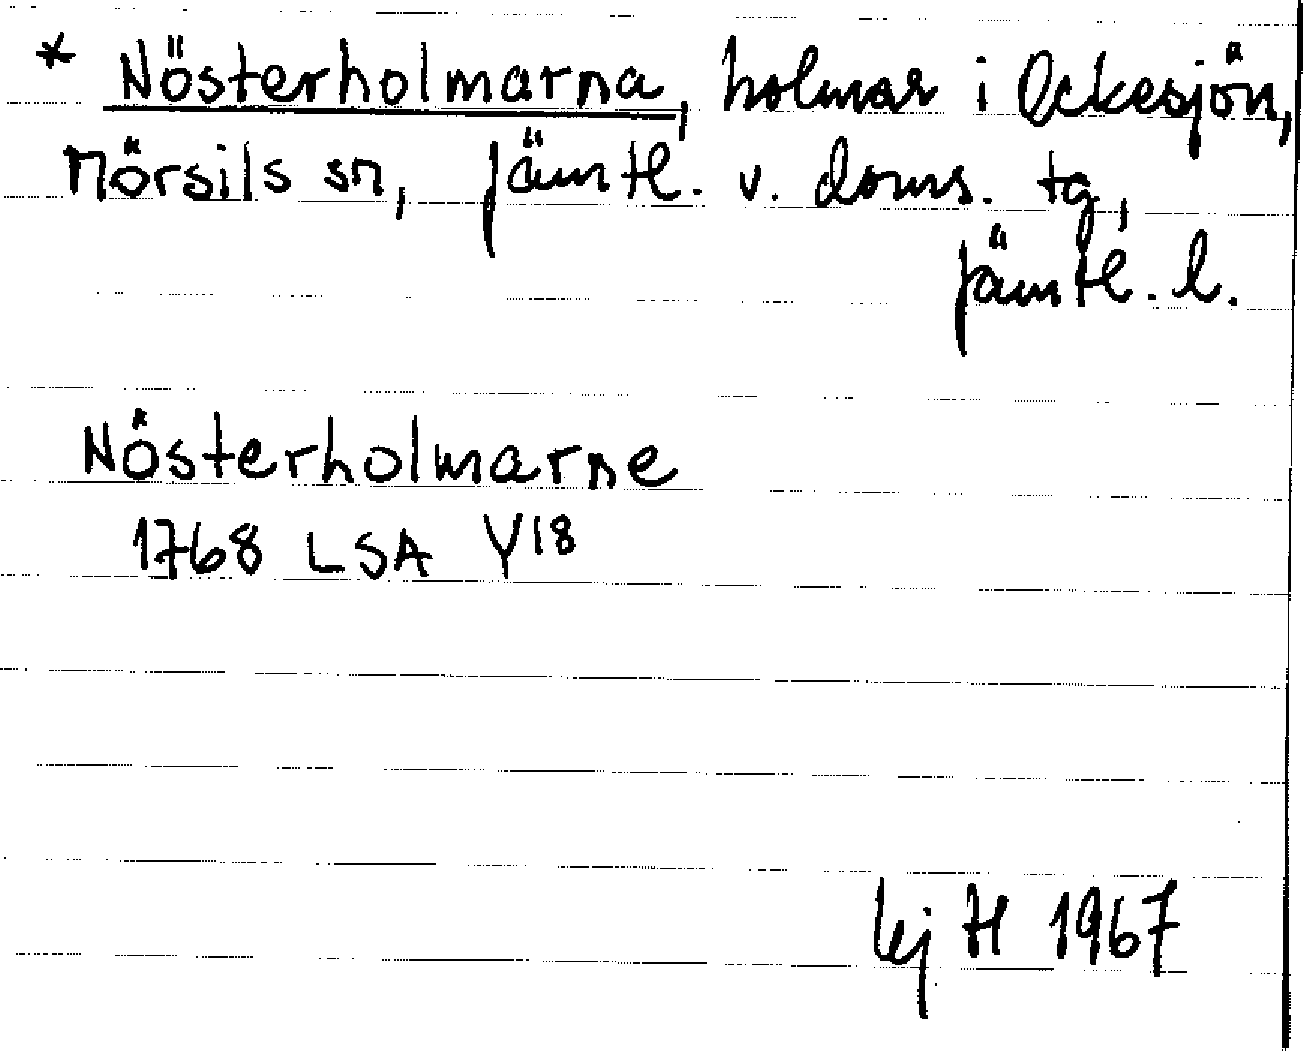 * Nösterholmarna, holmar i Ockesjön,
Mörsils sn, Jämtl. v. doms. tg,
Jämtl. l.
Nösterholmarne
1768 LSA Y18
H 1967